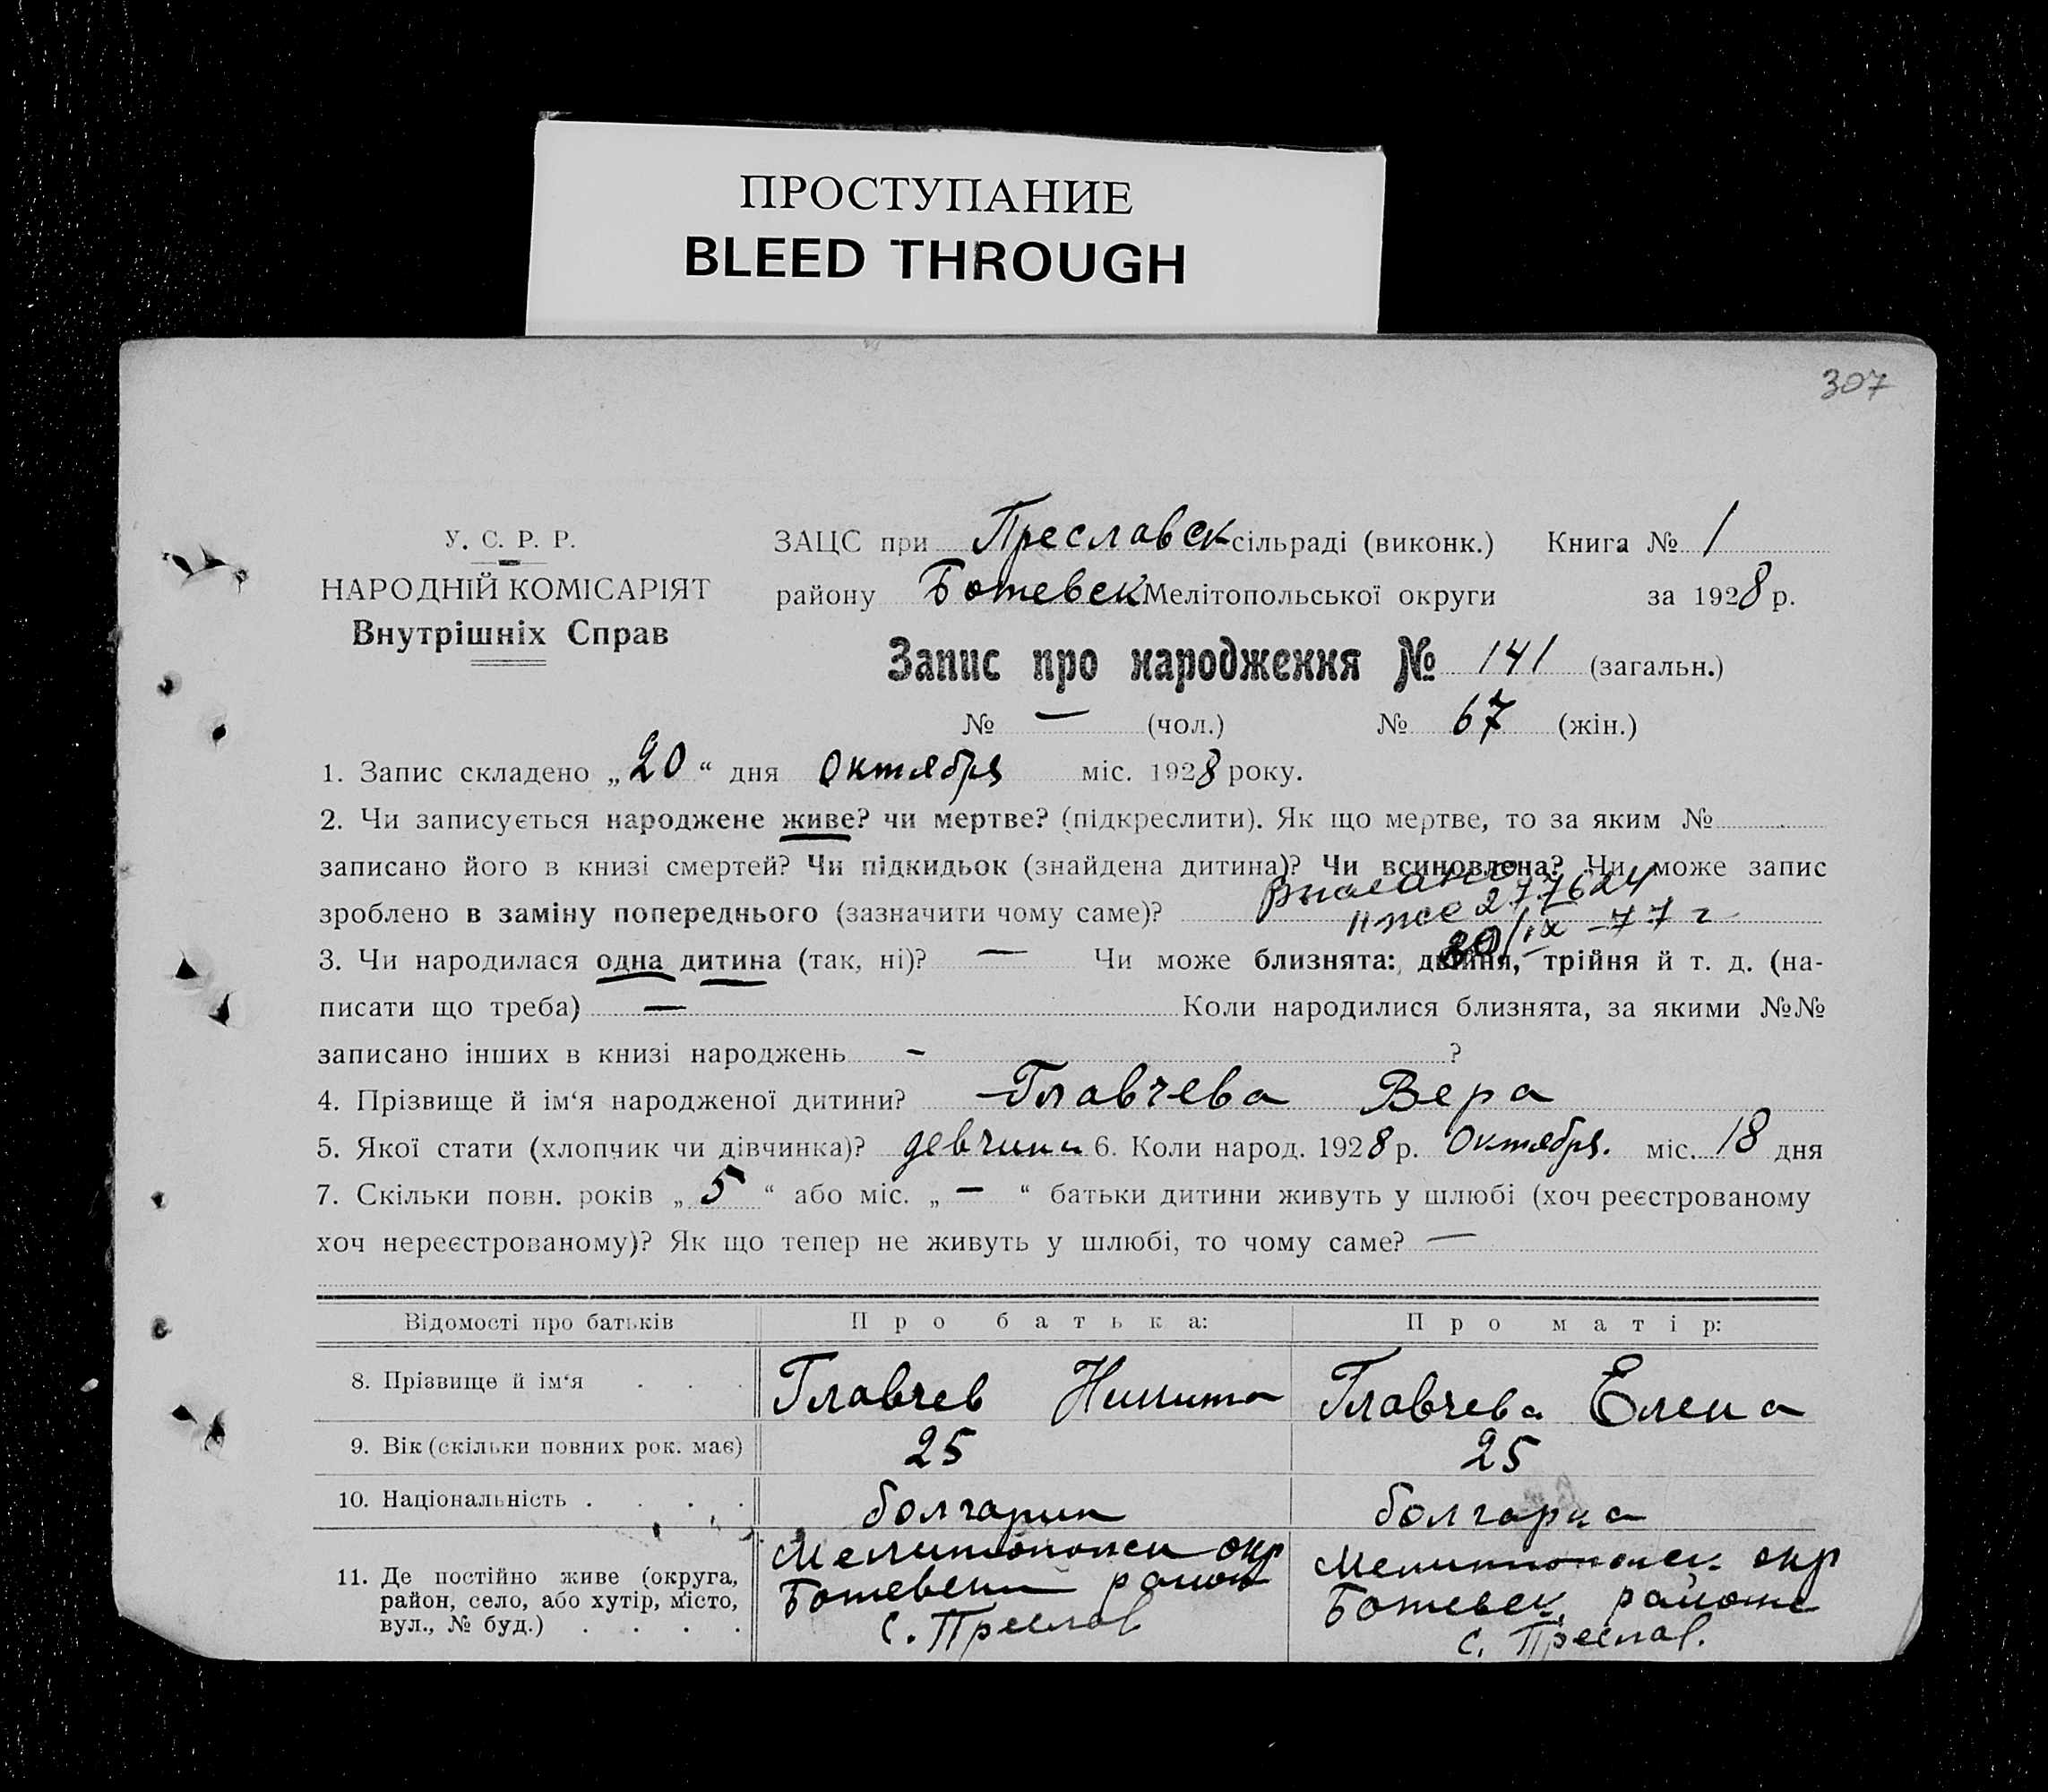 ПРОСТУПАНИЕ
BLEED THROUGH
307
У. С. Р. Р.
НАРОДНІЙ КОМІСАРІЯТ
Внутрішніх Справ
ЗАЦС при Преславск сільраді (виконк.) Книга № 1
району Ботевск Мелітопольської округи за 1928 р.
Запис про народження № 141 (загальн.)
№ — (чол.) № 67 (жін.)
1. Запис складено „20“ дня Октября міс. 1928 року.
2. Чи записується народжене живе? чи мертве? (підкреслити). Як що мертве, то за яким №
записано його в книзі смертей? Чи підкидьок (знайдена дитина)? Чи всиновлена? Чи може запис
зроблено в заміну попереднього (зазначити чому саме)?
277624
20/IX-77 г
3. Чи народилася одна дитина (так, ні)? — Чи може близнята: двійня, трійня й т. д. (на-
писати що треба) — Коли народилися близнята, за якими №№
записано інших в книзі народжень - ?
4. Прізвище й ім‘я народженої дитини? Главчева Вера
5. Якої стати (хлопчик чи дівчинка)? девчина 6. Коли народ. 1928 р. Октября. міс. 18 дня
7. Скільки повн. років „5“ або міс. „—“ батьки дитини живуть у шлюбі (хоч реєстрованому
хоч нереєстрованому)? Як що тепер не живуть у шлюбі, то чому саме? —
Відомості про батьків Про батька: Про матір:
8. Прізвище й ім‘я . . . Главчев Никита Главчева Елена
9. Вік (скільки повних рок. має) 25 25
10. Національність . . . . болгарин болгарка
11. Де постійно живе (округа, район, село, або хутір, місто, вул., № буд.) . . . .
Мелитопольск окр
Ботевский район
с. Преслав
Мелитопольск. окр
Ботевск. района
с. Преслав.